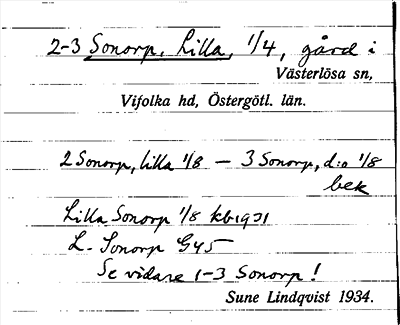 2-3 Sonorp, Lilla, 1/4, gård i
Västerlösa sn,
Vifolka hd, Östergötl. län.
2 Sonorp, lilla 1/8 — 3 Sonorp, d:o 1/8
bek
Lilla Sonorp 1/8 kb1921
L. Sonorp G45
Se vidare 1-3 Sonorp!
Sune Lindqvist 1934.